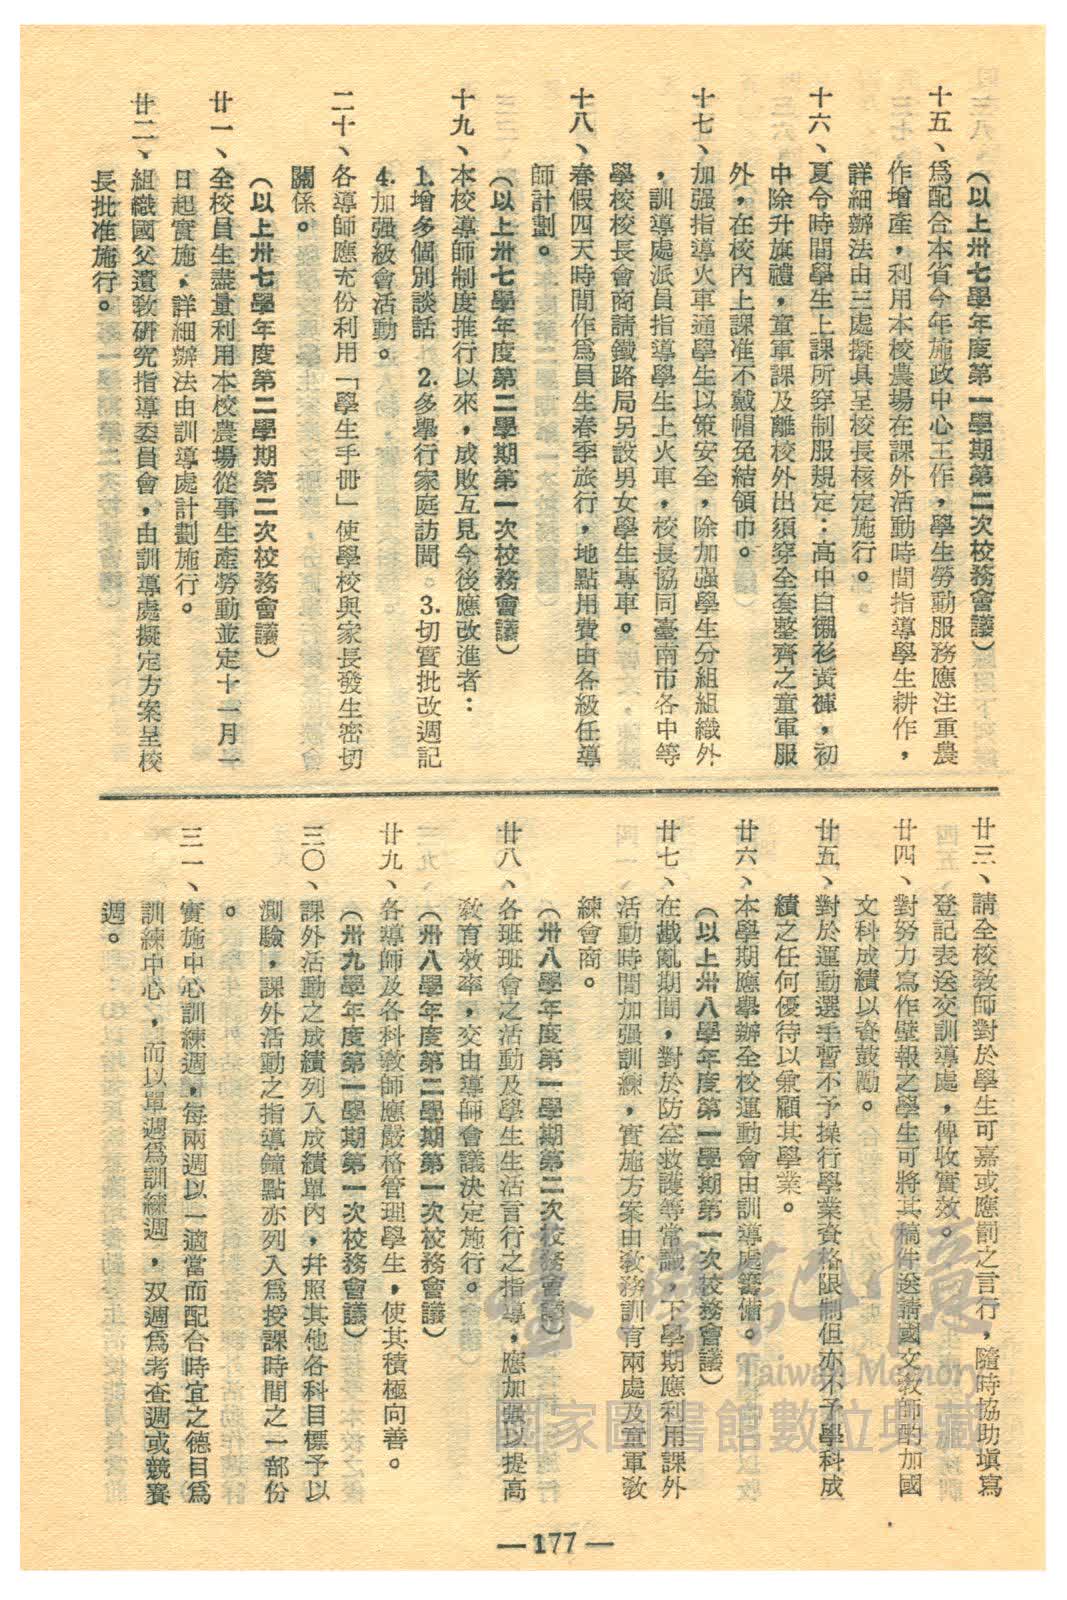 （以上卅七學年度第一學期第二次校務會議）
十五、爲配合本省今年施政中心工作，學生勞動服務應注重農
作增產，利用本校農場在課外活動時間指導學生耕作，
詳細辦法由三處擬具呈校長核定施行。
十六、夏令時間學生上課所穿制服規定：高中白襯衫黃褲，初
中除升旗禮，童軍課及離校外出須穿全套整齊之童軍服
外，在校內上課准不戴帽免結領巾。
十七、加强指導火車通學生以策安全，除加强學生分組組織外
，訓導處派員指導學生上火車，校長協同臺南市各中等
學校校長會商請鐵路局另設男女學生專車。
十八、春假四天時間作爲員生春季旅行，地點用費由各級任導
師計劃。
（以上卅七學年度第二學期第一次校務會議）
十九、本校導師制度推行以來，成敗互見今後應改進者：
1.增多個別談話 2.多舉行家庭訪問。3.切實批改週記
4.加强級會活動。
二十、各導師應充份利用「學生手冊」使學校與家長發生密切
關係。
（以上卅七學年度第二學期第二次校務會議）
廿一、全校員生盡量利用本校農場從事生產勞動並定十一月一
日起實施，詳細辦法由訓導處計劃施行。
廿二、組織國父遺教研究指導委員會，由訓導處擬定方案呈校
長批准施行。
廿三、請全校教師對於學生可嘉或應罰之言行，隨時協助填寫
登記表送交訓導處，俾收實效。
廿四、對努力寫作壁報之學生可將其稿件送請國文教師酌加國
文科成績以資鼓勵。
廿五、對於運動選手暫不予操行學業資格限制但亦不予學科成
績之任何優待以兼顧其學業。
廿六、本學期應舉辦全校運動會由訓導處籌備。
（以上卅八學年度第一學期第一次校務會議）
廿七、在戡亂期間，對於防空救護等常識，下學期應利用課外
活動時間加强訓練，實施方案由教務訓育兩處及童軍教
練會商。
（卅八學年度第一學期第二次校務會議）
廿八、各班班會之活動及學生生活言行之指導，應加强以提高
教育效率，交由導師會議決定施行。
（卅八學年度第二學期第一次校務會議）
廿九、各導師及各科教師應嚴格管理學生，使其積極向善。
（卅九學年度第一學期第一次校務會議）
三〇、課外活動之成績列入成績單內，幷照其他各科目標予以
測驗，課外活動之指導鐘點亦列入爲授課時間之一部份
。
三一、實施中心訓練週，每兩週以一適當而配合時宜之德目爲
訓練中心，而以單週爲訓練週，双週爲考查週或競賽
週。
—177—
臺灣記憶
Taiwan Memory
國家圖書館數位典藏